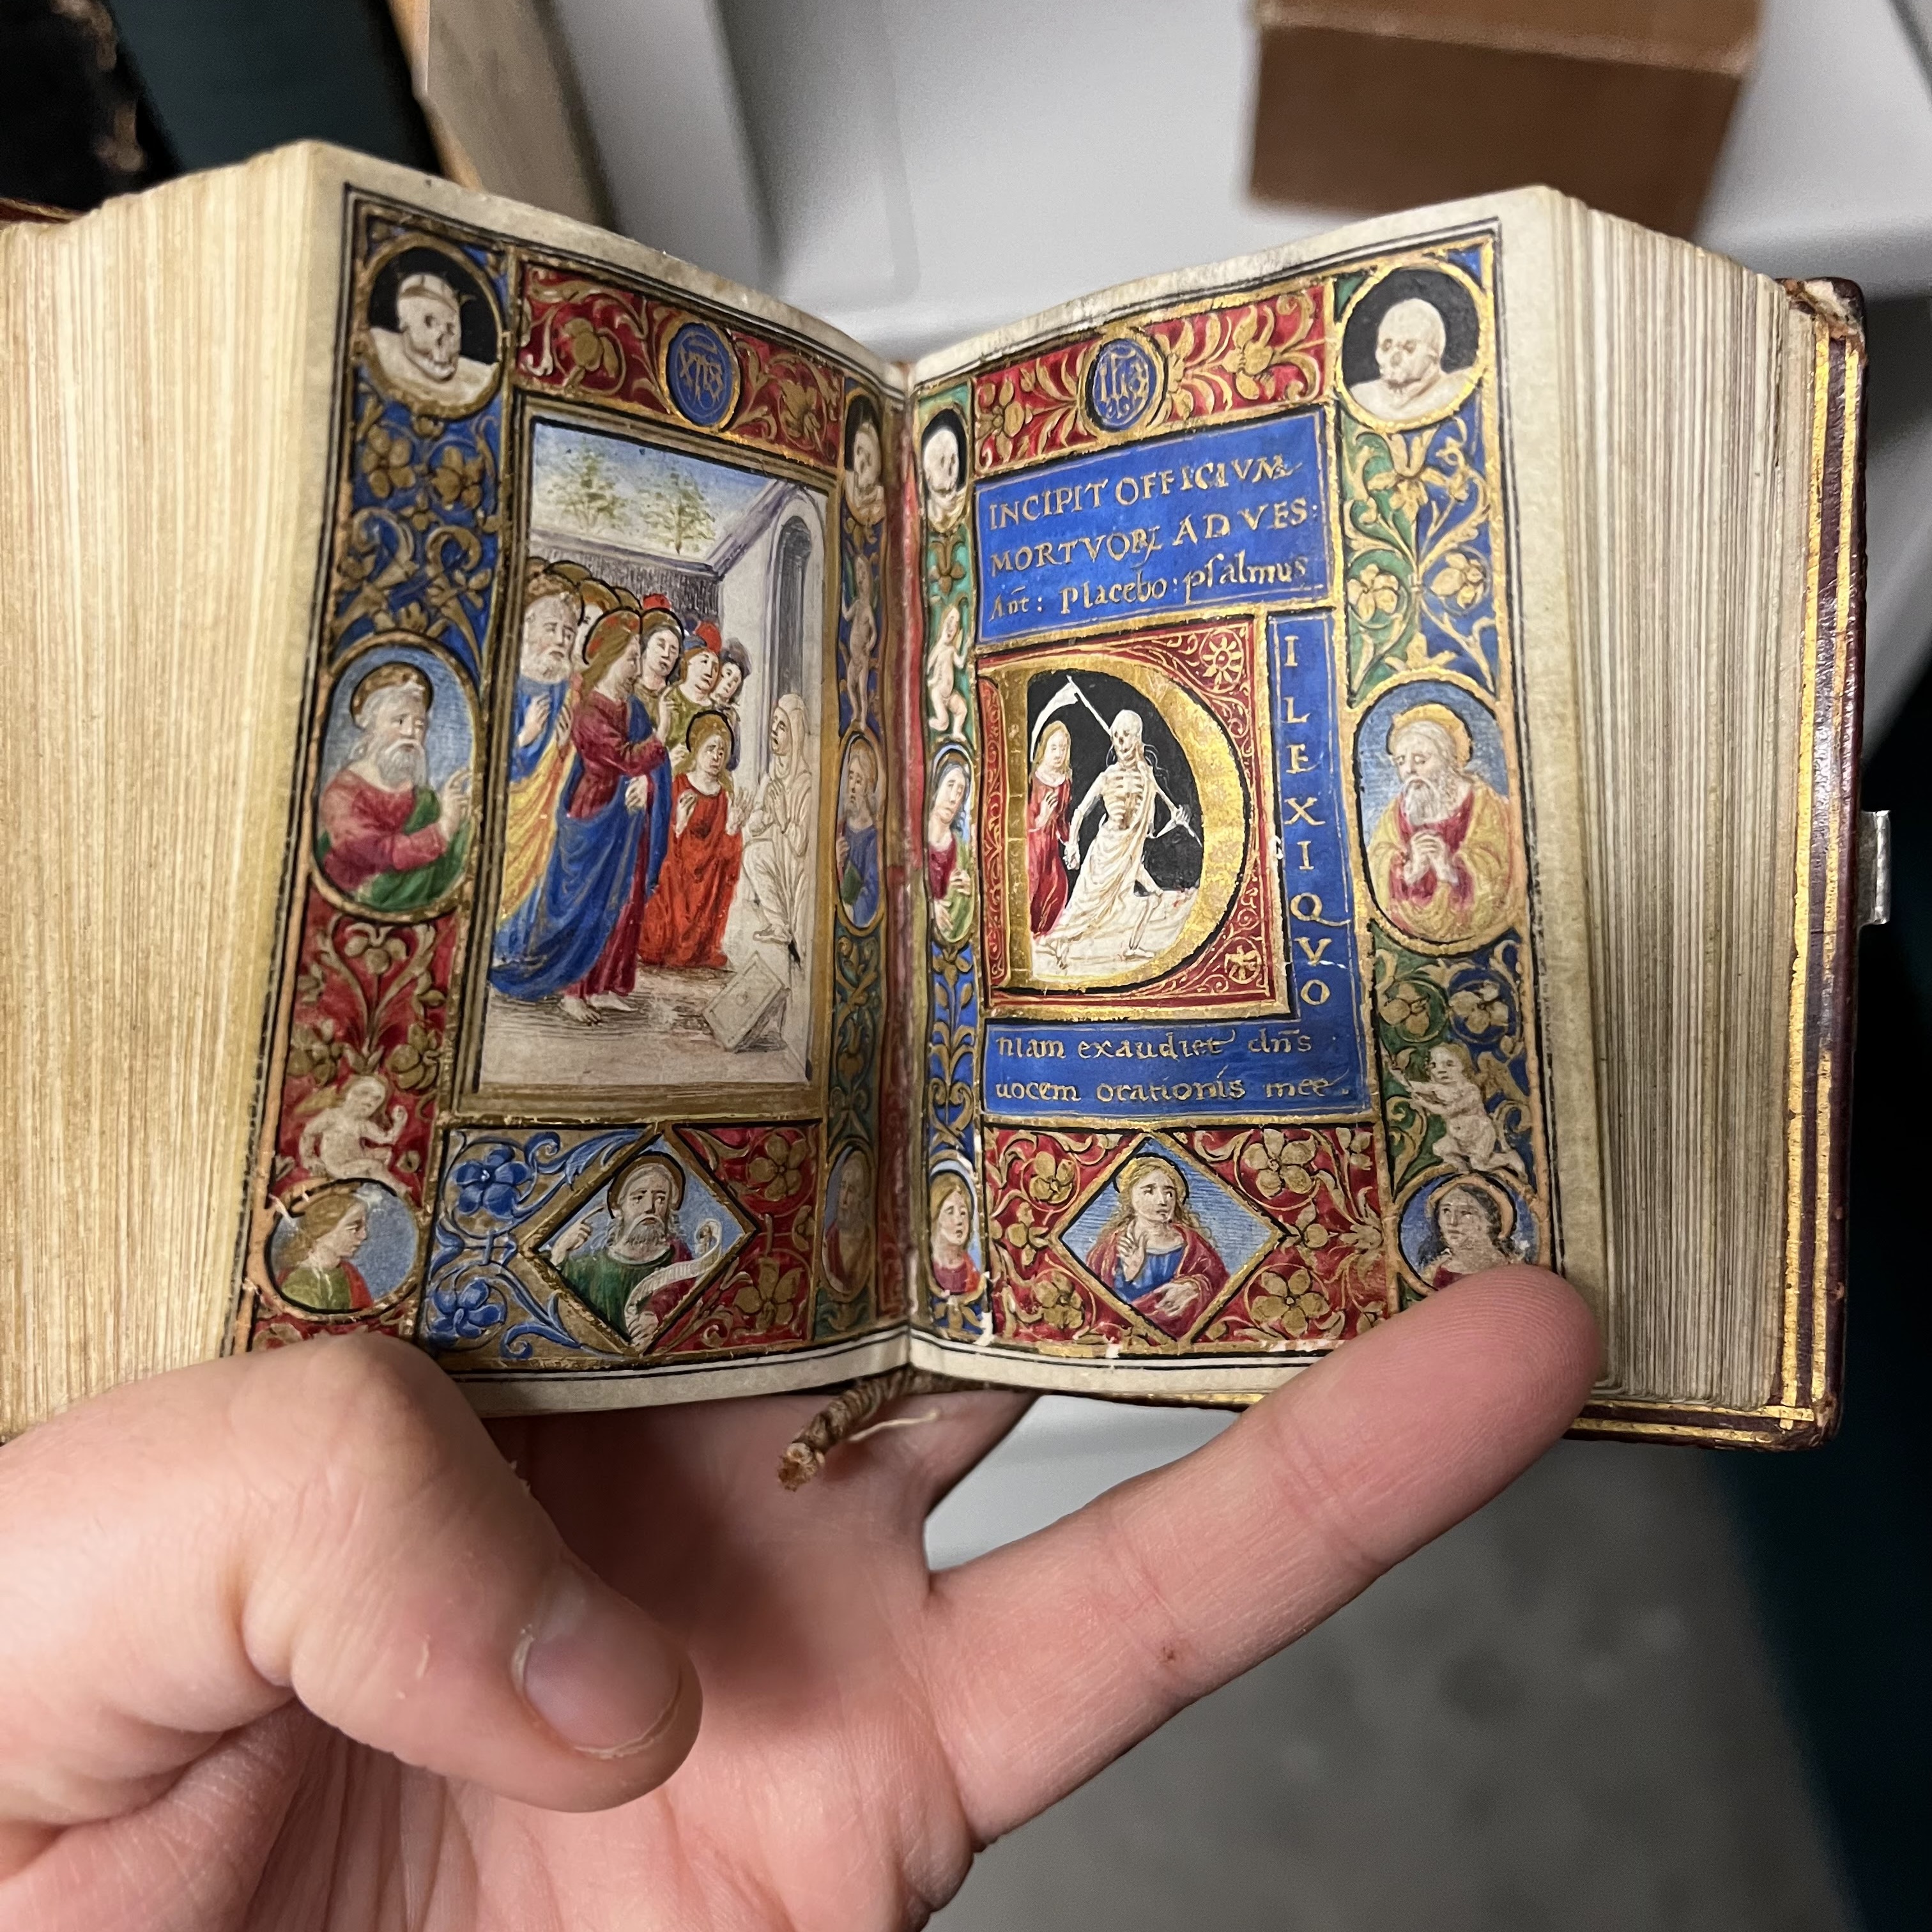 YHS
INCIPIT OFFICIVM
MORTVORꝜ AD VES:
Añt: Placebo: psalmus
D
I
L
E
X
I
Q
V
O
niam exaudiet dn̄s
uocem orationis mee.